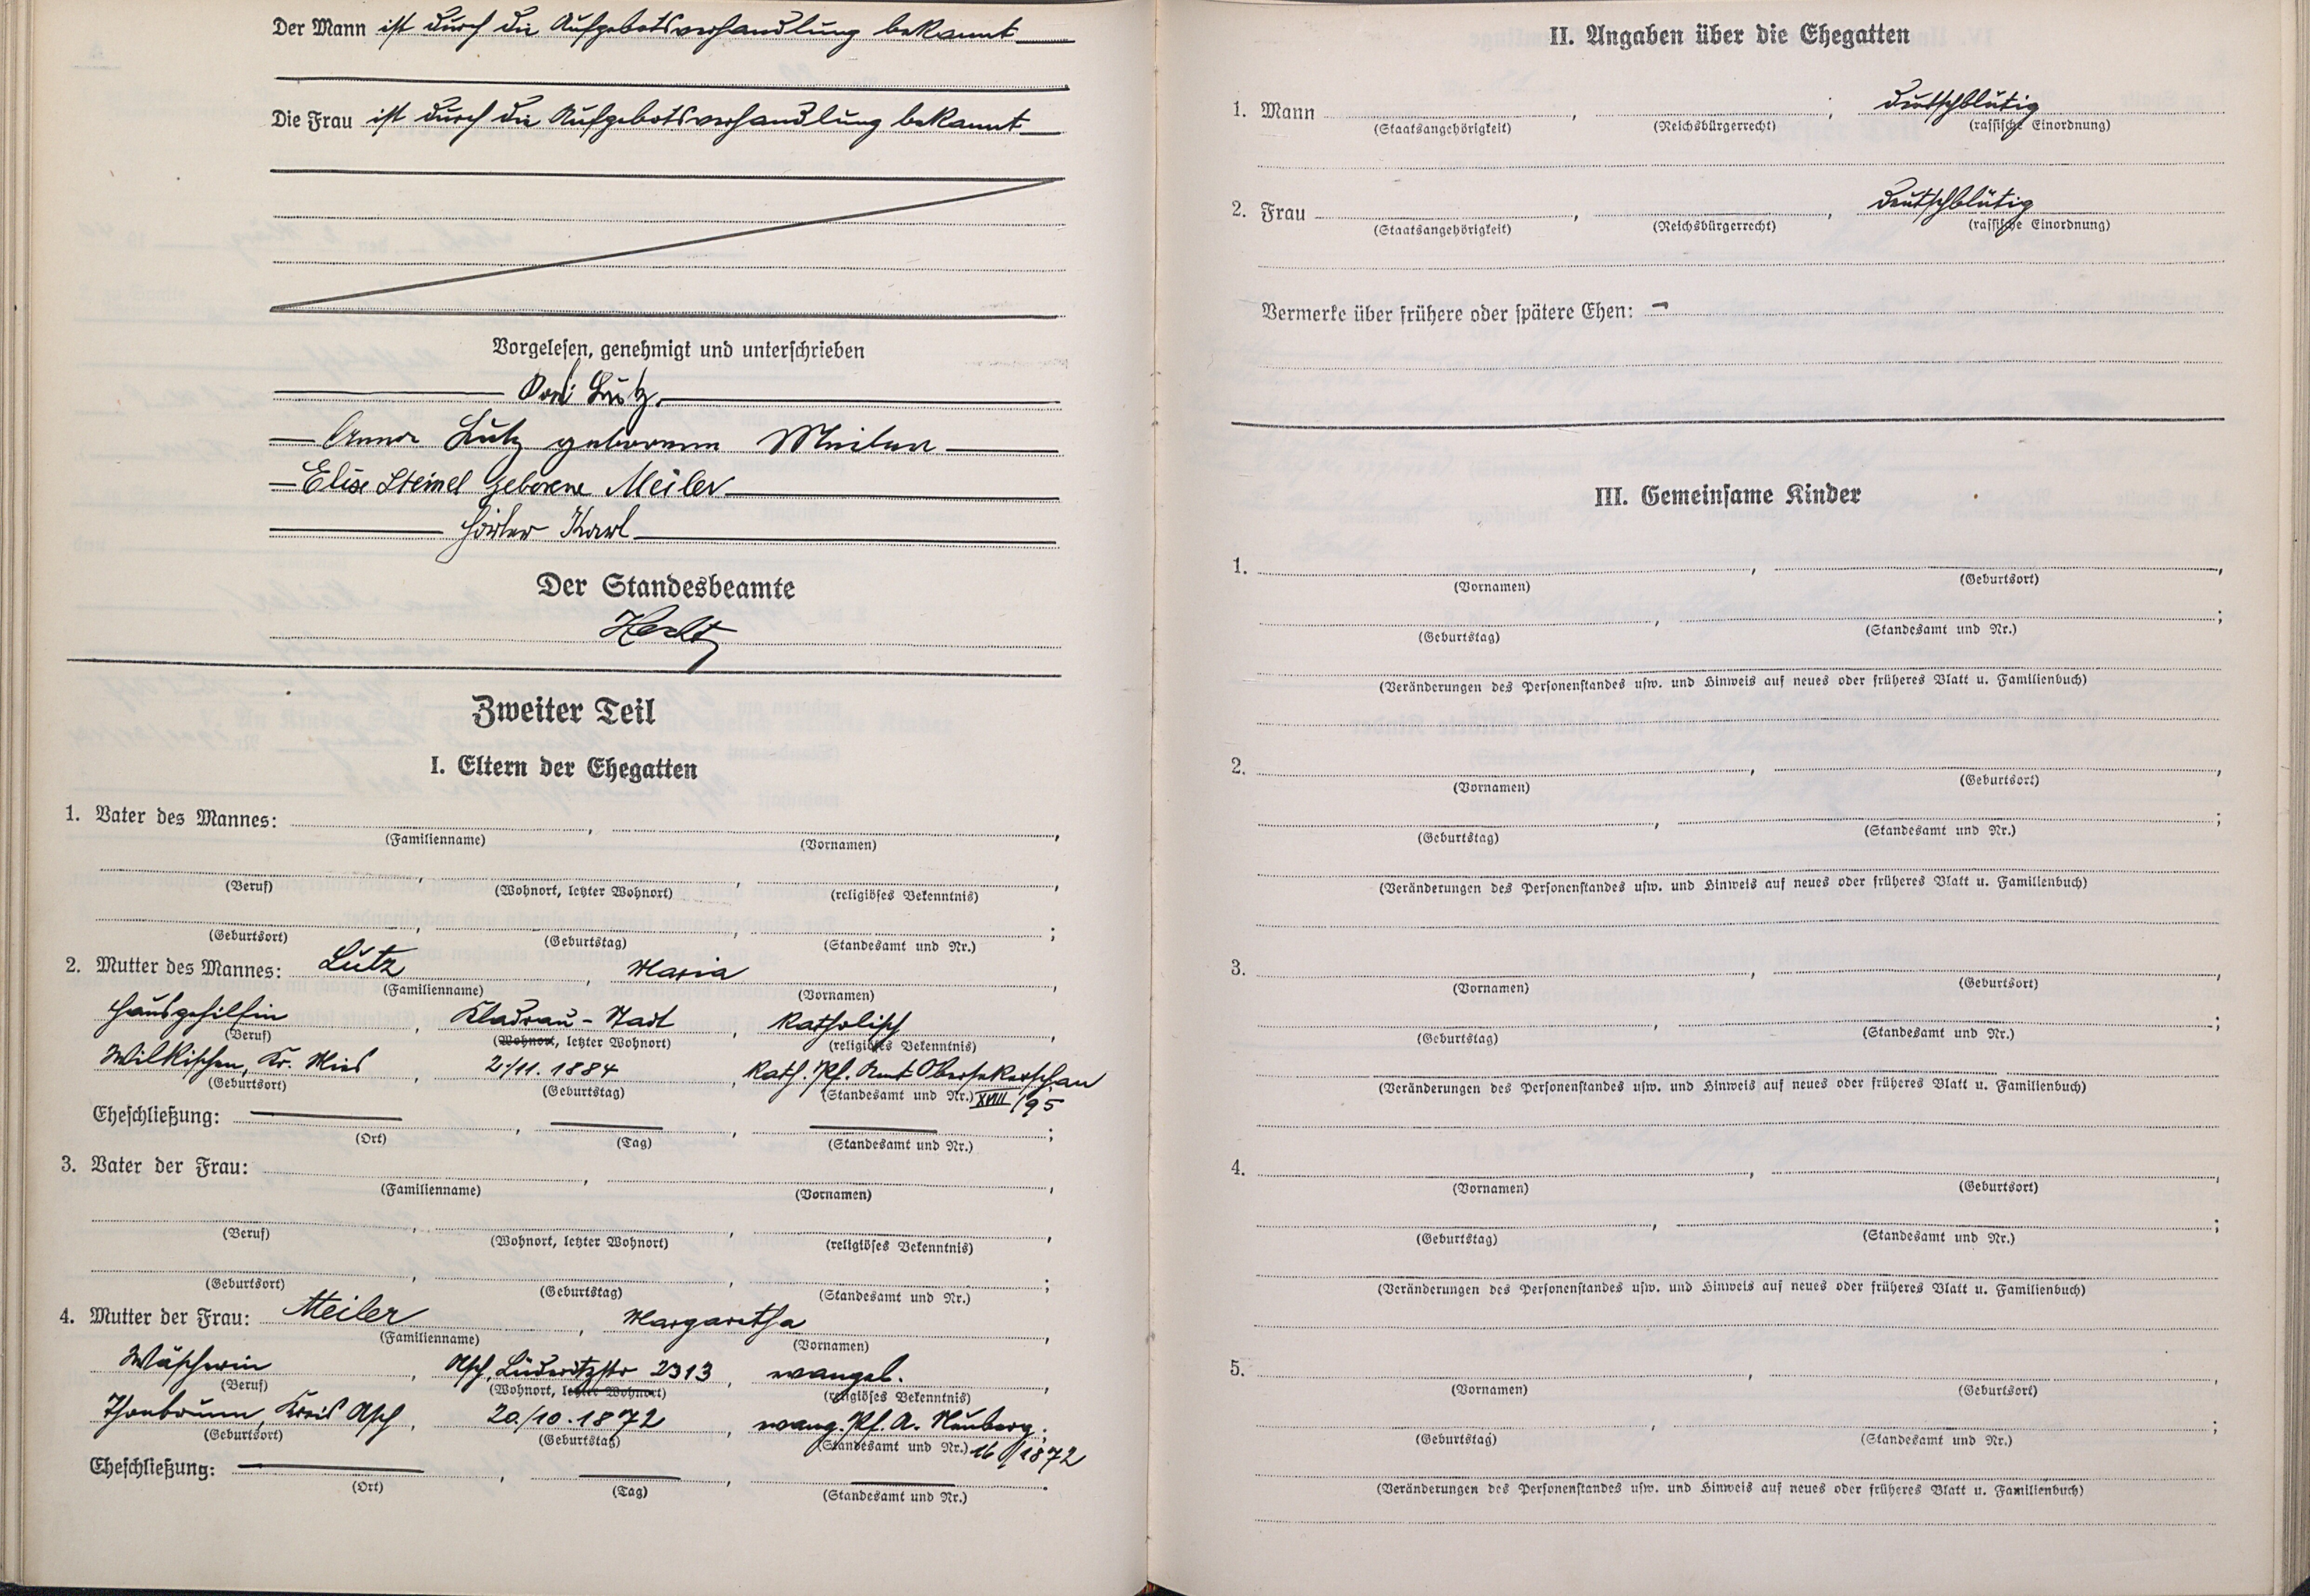 Der Mann ist durch die Aufgebotsverhandlung bekannt
Die Frau ist durch die Aufgebotsverhandlung bekannt
Vorgelesen, genehmigt und unterschrieben
Lutz
Anna Lutz geborene Meiler
Elise Steinel geborene Meiler
Karl
Der Standesbeamte
Zweiter Teil
I. Eltern der Ehegatten
1. Vater des Mannes: , ,
(Familienname) (Vornamen)
, , ,
(Beruf) (Wohnort, letzter Wohnort) (religiöses Bekenntnis)
, , ;
(Geburtsort) (Geburtstag) (Standesamt und Nr.)
2. Mutter des Mannes: Lutz , Maria ,
(Familienname) (Vornamen)
Hausgehilfin , Kladrau - Stadt , katholisch ,
(Beruf) (Wohnort, letzter Wohnort) (religiöses Bekenntnis)
Wilkischen, Kr. Mies , 2./11. 1884 , Kath. Pf. Amt
(Geburtsort) (Geburtstag) (Standesamt und Nr.) XVIII/95
Eheschließung: — , — , — ;
(Ort) (Tag) (Standesamt und Nr.)
3. Vater der Frau: , ,
(Familienname) (Vornamen)
, , ,
(Beruf) (Wohnort, letzter Wohnort) (religiöses Bekenntnis)
, , ;
(Geburtsort) (Geburtstag) (Standesamt und Nr.)
4. Mutter der Frau: Meiler , Margaretha ,
(Familienname) (Vornamen)
Wäscherin , Asch, 2313 , evangel. ,
(Beruf) (Wohnort, letzter Wohnort) (religiöses Bekenntnis)
Thonbrunn, Kreis Asch , 20./10. 1872 , evang. Pf. A. Neuberg ;
(Geburtsort) (Geburtstag) (Standesamt und Nr.) 16 /1872
Eheschließung: — , — , — .
(Ort) (Tag) (Standesamt und Nr.)
II. Angaben über die Ehegatten
1. Mann , ; deutschblütig
(Staatsangehörigkeit) (Reichsbürgerrecht) (rassische Einordnung)
2. Frau , , deutschblütig
(Staatsangehörigkeit) (Reichsbürgerrecht) (rassische Einordnung)
Vermerke über frühere oder spätere Ehen: -
III. Gemeinsame Kinder
1. , ,
(Vornamen) (Geburtsort)
, ;
(Geburtstag) (Standesamt und Nr.)
(Veränderungen des Personenstandes usw. und Hinweis auf neues oder früheres Blatt u. Familienbuch)
2. , ,
(Vornamen) (Geburtsort)
, ;
(Geburtstag) (Standesamt und Nr.)
(Veränderungen des Personenstandes usw. und Hinweis auf neues oder früheres Blatt u. Familienbuch)
3. , ,
(Vornamen) (Geburtsort)
, ;
(Geburtstag) (Standesamt und Nr.)
(Veränderungen des Personenstandes usw. und Hinweis auf neues oder früheres Blatt u. Familienbuch)
4. , ,
(Vornamen) (Geburtsort)
, ;
(Geburtstag) (Standesamt und Nr.)
(Veränderungen des Personenstandes usw. und Hinweis auf neues oder früheres Blatt u. Familienbuch)
5. , ,
(Vornamen) (Geburtsort)
, ;
(Geburtstag) (Standesamt und Nr.)
(Veränderungen des Personenstandes usw. und Hinweis auf neues oder früheres Blatt u. Familienbuch)